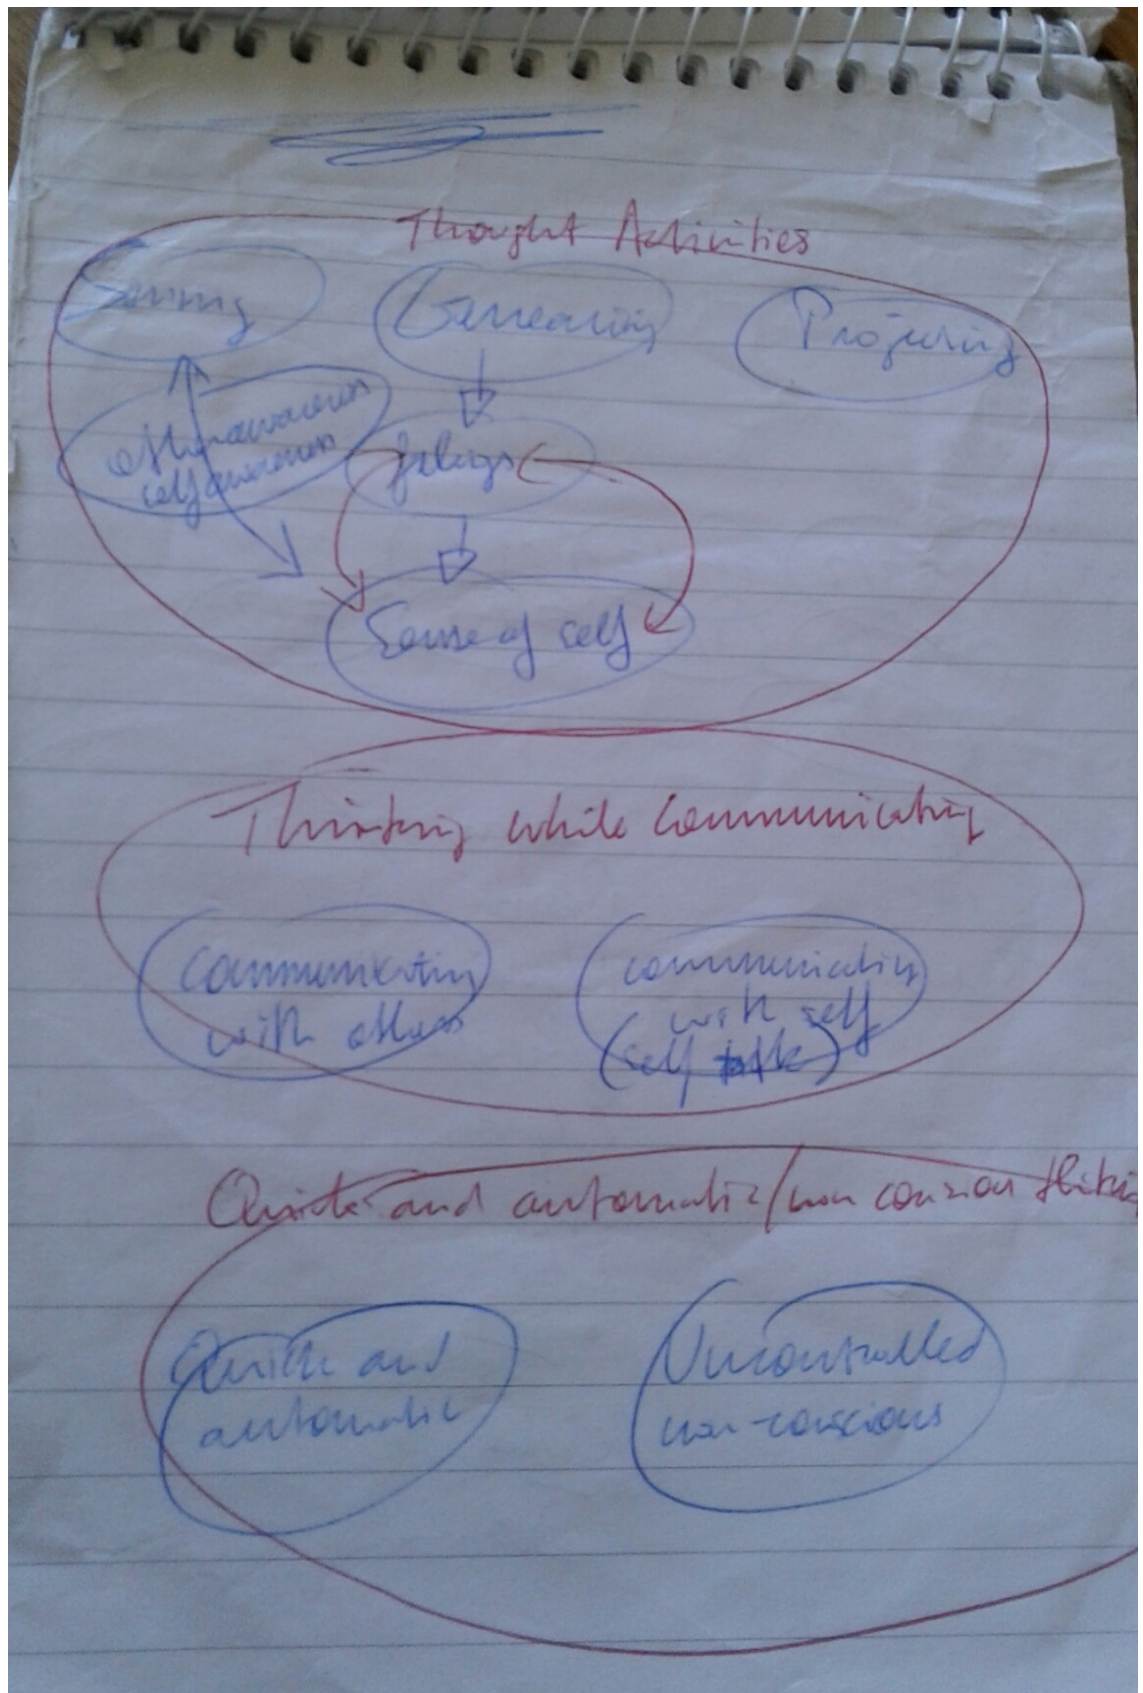 Thought Activities
Sensing Generating Projecting
other awareness
self awareness
feelings
Sense of self
Thinking while communicating
Communicating
with others
communicating
with self
(self talk)
Quick and automatic/non conscious thinking
Quick and
automatic
Uncontrolled
non-conscious